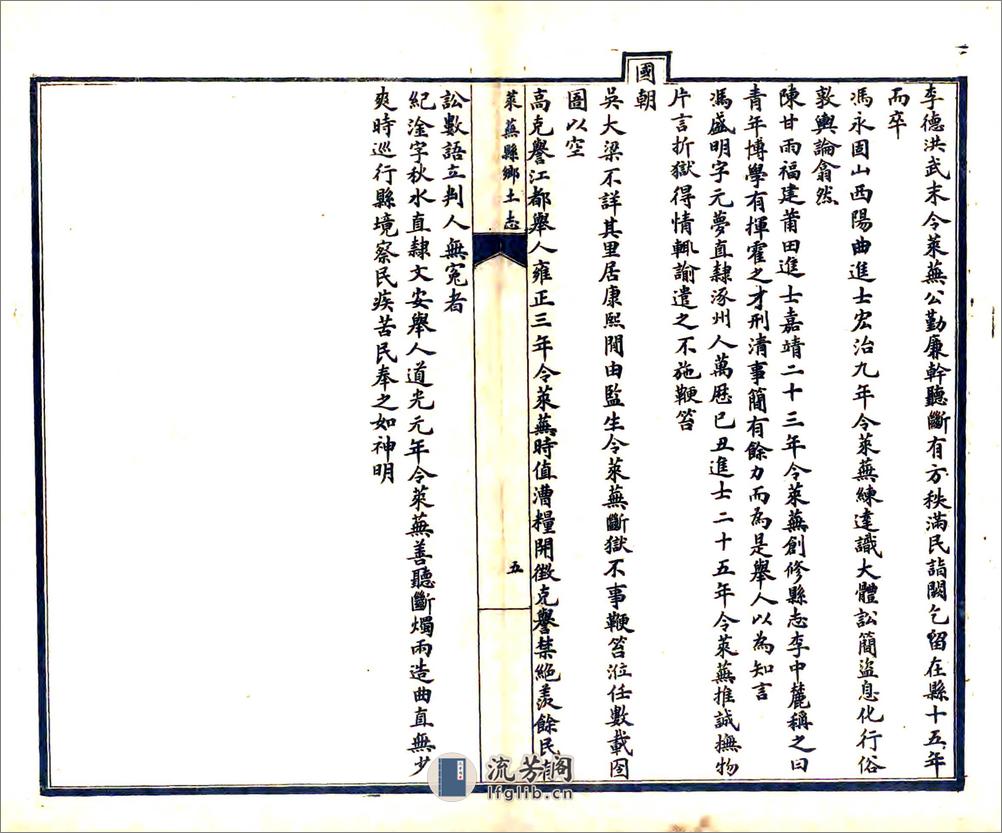 李德洪武末令萊蕪公勤廉幹聽斷有方秩滿民詣闕乞留在縣十五年
而卒
馮永固山西陽曲進士宏治九年令萊蕪練達識大體訟簡盜息化行俗
敦輿論翕然
陳甘雨福建莆田進士嘉靖二十三年令萊蕪創修縣志李中麓稱之曰
青年博學有揮霍之才刑清事簡有餘力而為是舉人以為知言
馮盛明字元夢直隸涿州人萬歷已丑進士二十五年令萊蕪推誠撫物
片言折獄得情輒諭遣之不施鞭笞
國
朝
吳大梁不詳其里居康熙閒由監生令萊蕪斷獄不事鞭笞涖任數載囹
圄以空
高克譽江都舉人雍正三年令萊蕪時值漕糧開徵克譽禁絕羨餘民
萊蕪縣鄉土志
五
訟數語立判人無冤者
紀淦字秋水直隸文安舉人道光元年令萊蕪善聽斷燭兩造曲直無少
爽時巡行縣境察民疾苦民奉之如神明
流芳閣
lfglib.cn